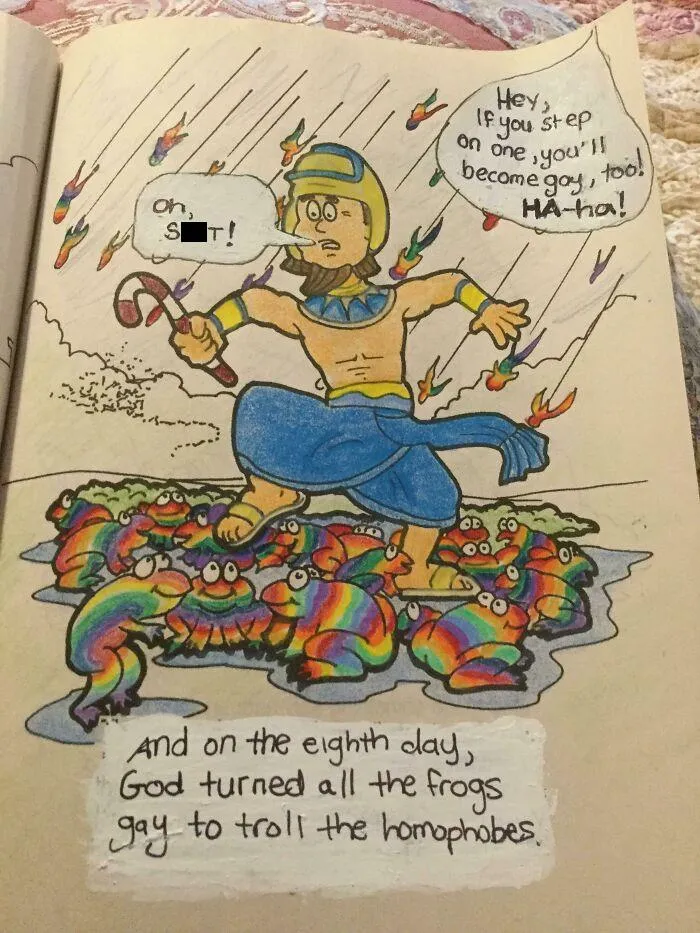 Hey,
If you step
on one, you'll
become gay, too!
HA-ha!
Oh,
S■T!
And on the eighth day,
God turned all the frogs
gay to troll the homophobes.